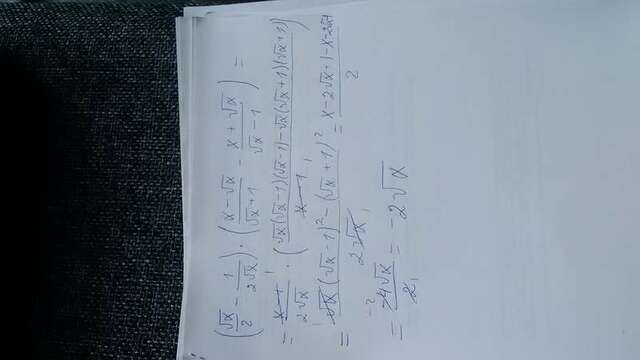 (√x/2 − 1/(2√x)) · ((x−√x)/(√x+1) − (x+√x)/(√x−1)) =
= (x−1)/(2√x) · ((√x(√x−1)(√x−1)−√x(√x+1)(√x+1))/(x−1))
= √x((√x−1)²−(√x+1)²)/(2√x) = (x−2√x+1−x−2√x−1)/2
= −4√x/2 = −2√x